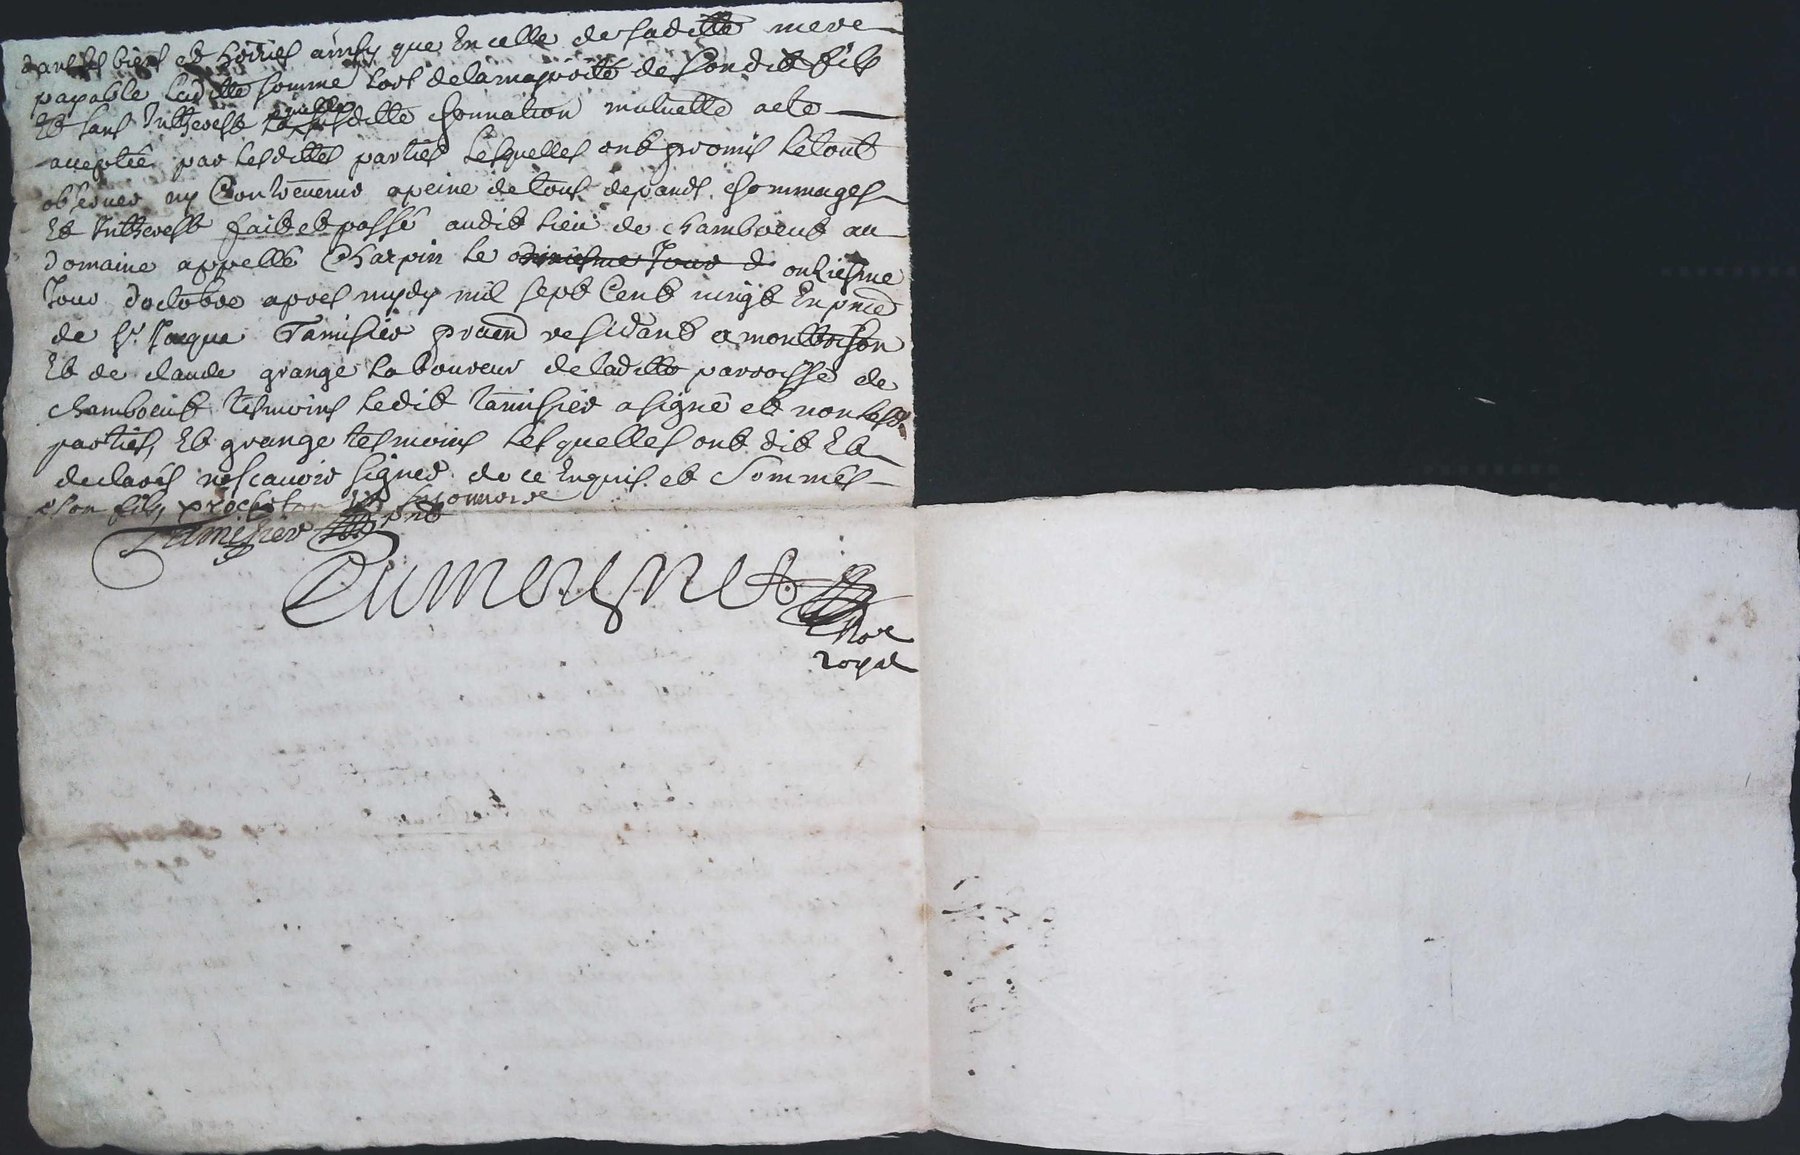 dans ses biens et hoiries ainsy que En celle de sa ditte mere
payable laditte somme lors de la majorité de son dit fils
Et sans Intherest laquelle ditte donnation mutuelle a ete
acceptée par lesdittes parties lesquelles ont promis le tout
observer ny Contrevenir a peine de tous depands dommages
Et Intherest fait et passé audit lieu de chambœuf au
domaine appellé Charpin le onziesme Jour d onziesme
Jour d'octobre apres mydy mil sept Cent vingt En pnce
de Sr. Jacque Tamisier pratn residant a montbrison
Et de claude grange laboureur de laditte parroisse de
chambœuf tesmoins ledit tamisier a signé et non lesd.
parties Et grange tesmoins lesquelles ont dit Et
declarés ne scavoir signer de ce Enquis et Sommés
Tamisier pnt
Dumoynet
No.re
royal